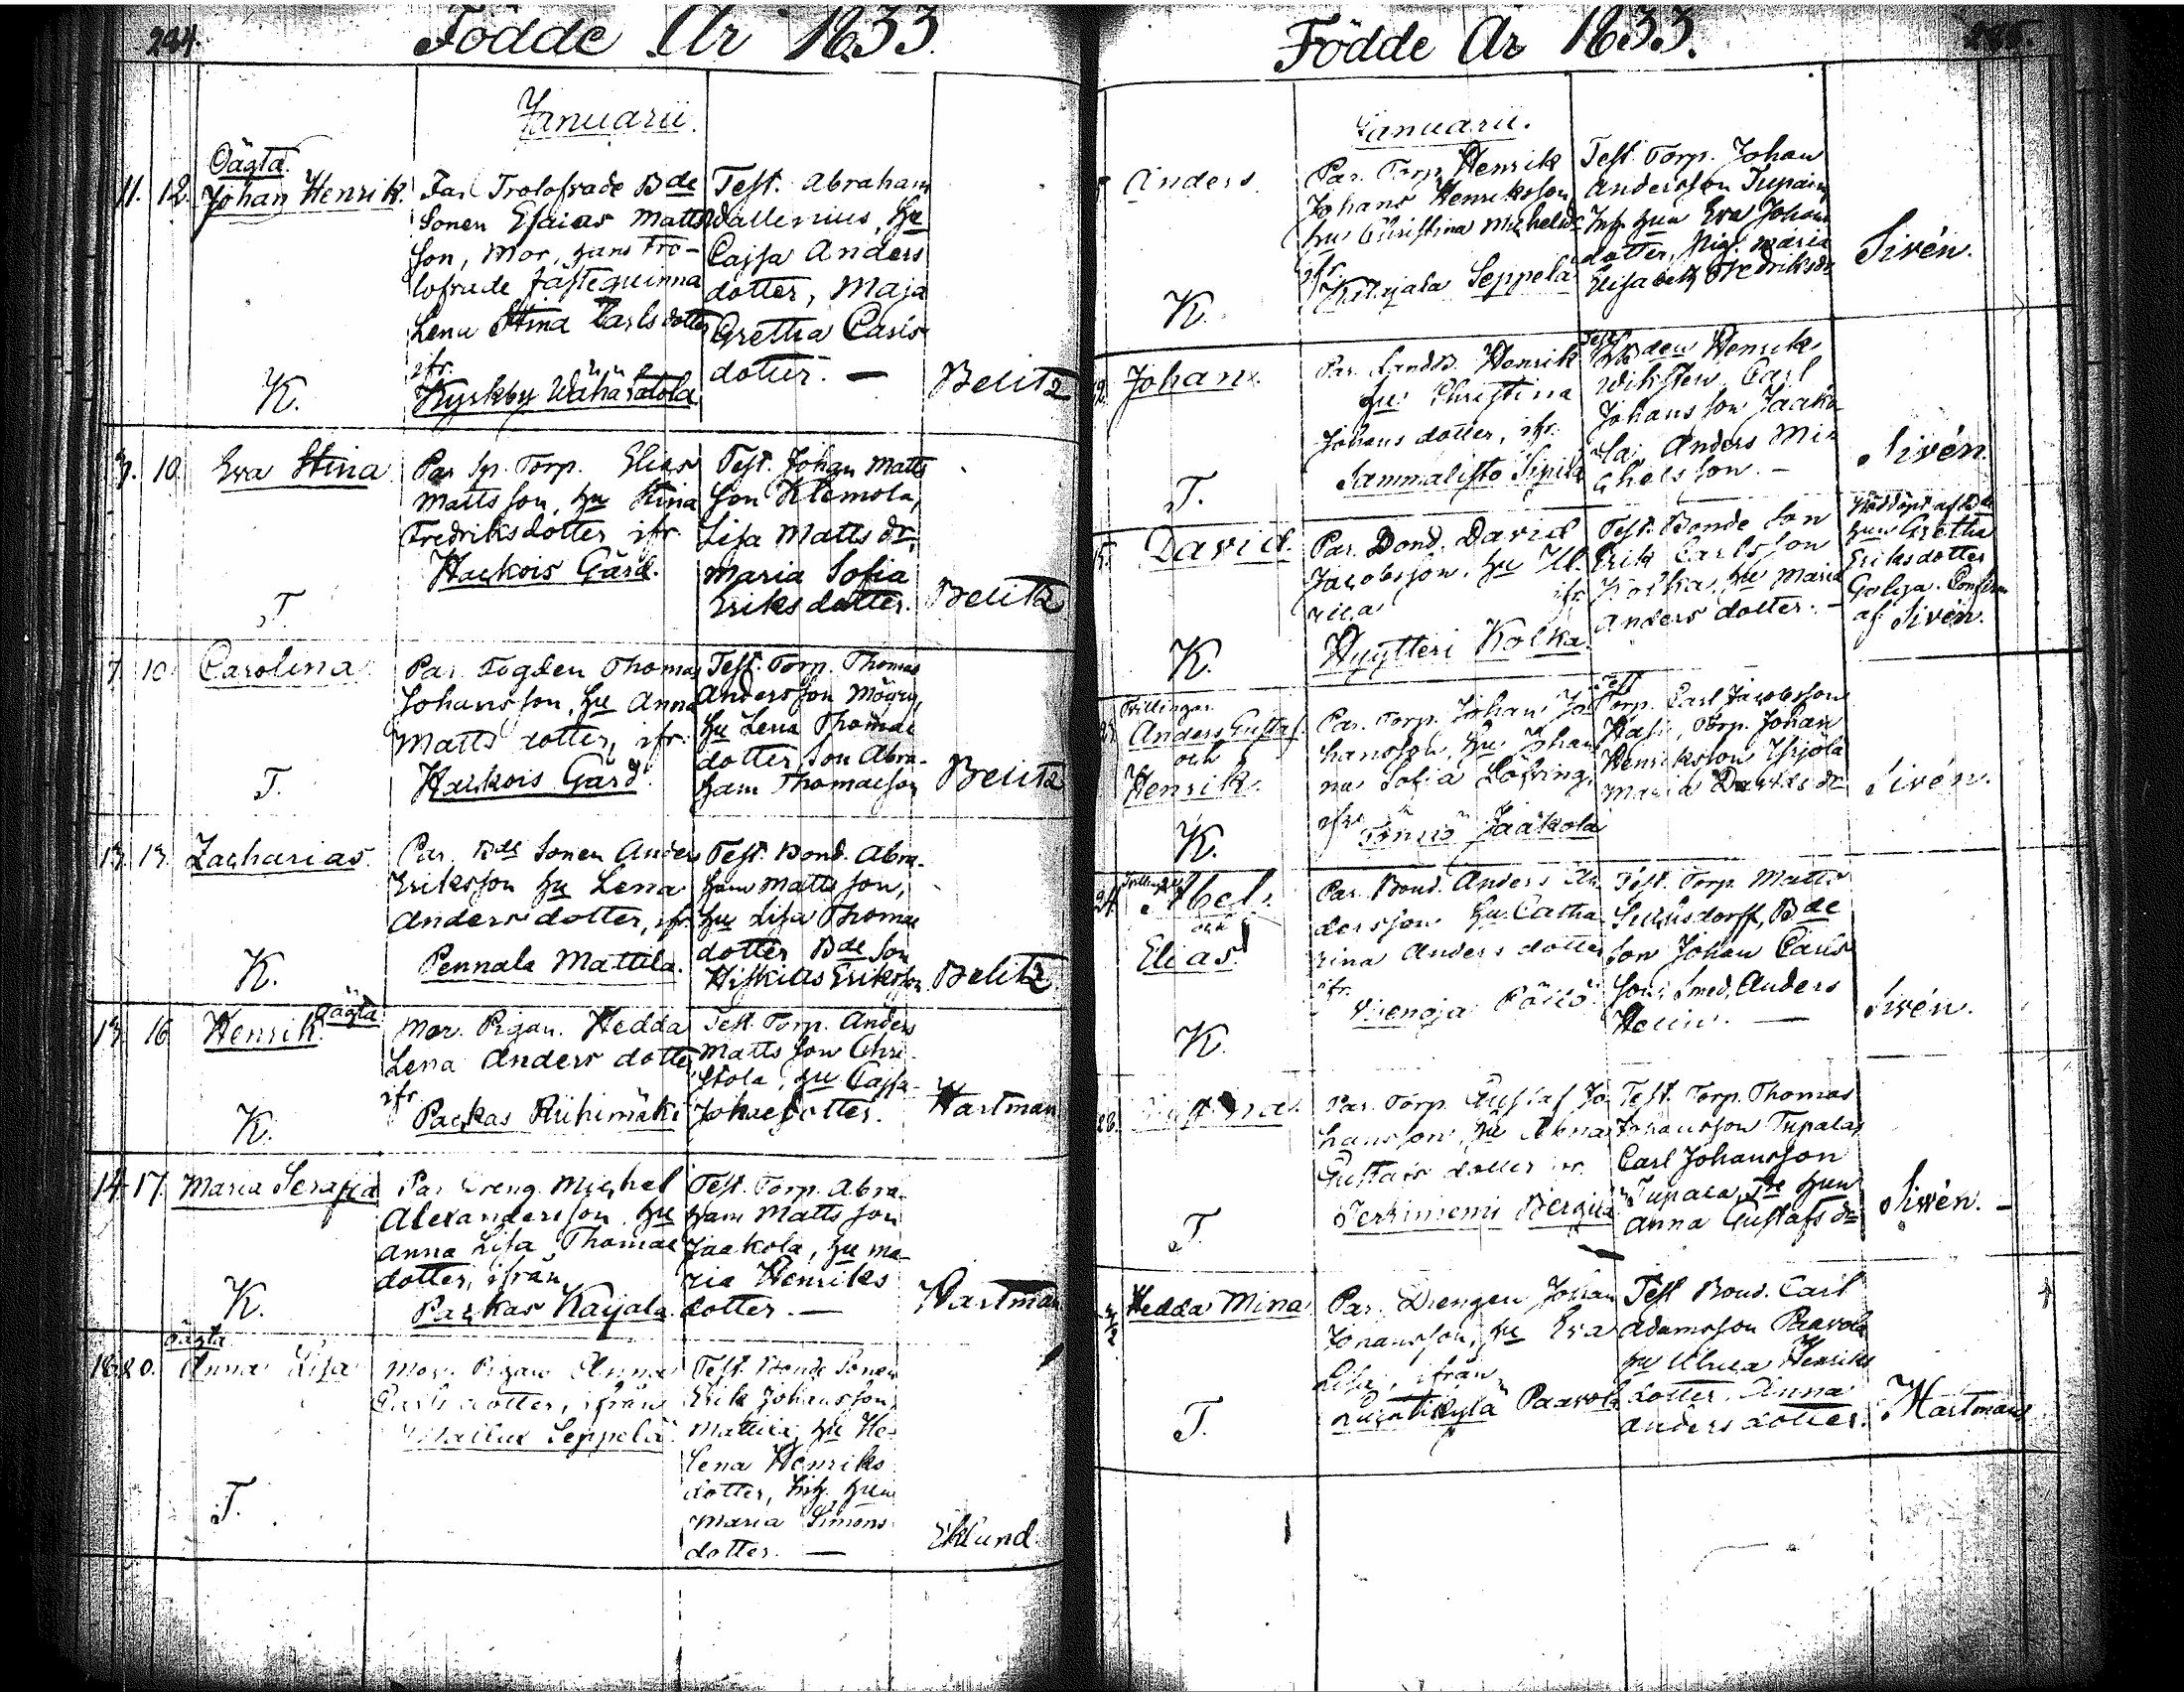 244.
Födde År 1833.
Januarii.
Oägta
11. 12. Johan Henrik.
Far Trolofvade Bde
Sonen Esaias Matts
son, Mor, hans Tro-
lofvade Fästequinna
Lena Stina Carlsdotter
ifr.
Kyrkby Wähäratola
Test. Abraham
Dallenius, Hu
Cajsa Anders
dotter, Maja
Gretha Caris
dotter. —
Belitz
K.
7. 10. Eva Stina
Par Sp. Torp. Elias
Mattsson, hu Stina
Fredriksdotter ifr.
Hackois Gård.
Test. Johan Matts
son Klemola,
Lisa Matts dr,
Maria Sofia
Eriksdotter.
Belitz
T.
7. 10. Carolina
Par. Fogden Thomas
Johansson, hu Anna
Matts dotter, ifr.
Hackois Gård.
Test. Torp. Thomas
Andersson
hu Lena Thomae
dotter, Son Abra-
ham Thomaeson
Belitz
T.
13. 13. Zacharias.
Par. Bde Sonen Anders
Eriksson hu Lena
Anders dotter, ifr.
Pennala Mattila.
Test. Bond. Abra-
ham Mattsson,
hu Lisa Thomae
dotter Bde Son
Hiskias Eriksson
Belitz
K.
13. 16. Henrik. Oägta
Mor. Pigan Hedda
Lena Anders dotter
ifr.
Packas Riihimäki
Test. Torp. Anders
Mattsson Chri-
stola, hu Cajsa
Johaesdotter.
Hartman
K.
14. 17. Maria Serafia
Par Dreng Michel
Alexandersson, hu
Anna Lisa Thomae
dotter, ifrån
Packas Kaijala
Test. Torp. Abra-
ham Mattsson
Jaakola, hu Ma-
ria Henriks
dotter. —
Hartman
K.
Oägta
18. 20. Anna Lisa
Mor. Pigan Anna
Carls dotter, ifrån
Seppelä
Test. Bonde Sonen
Erik Johansson
Mattila, hu He-
lena Henriks
dotter, Inh. hun
Maria Simons
dotter. —
Eklund
T.
Födde År 1833.
Januarii.
Anders.
Par. Torp. Henrik
Johans Henriksson
hu Christina Michelsdr
ifr.
Seppelä
Test. Torp. Johan
Andersson
Inh. hun Eva Johans
dotter, Pig. Maria
Elisabeth Fredriksdr
Sivén.
K.
12. Johan.
Par. LandB. Henrik
hu Christina
Johans dotter, ifr.
Sammalisto Sipilä
Test.
Bden Henrik
Wiksten, Carl
Johansson Jaako
la, Anders Mi-
chelsson. —
Sivén.
T.
15. David.
Par. Bond. David
Jacobsson, hu Ul-
rica ifr.
Hyytteri Kolka.
Test. Bonde Son
Erik Carlsson
Kolka, hu Maria
Anders dotter. —
Nöddöpt af Bde
hun Gretha
Eriksdotter
Confirm
af Sivén.
K.
Tvillingar.
Anders Gustaf.
och
Henrik.
Par. Torp. Johan Jo
hansson, hu Johan
na Sofia Löfving,
ifr.
Jaakola
Test.
Torp. Carl Jacobsson
Torp. Johan
Henriksson Yrjölä
Maria Davids dr
Sivén.
K.
24. Tvillingar
Abel.
och
Elias.
Par. Bond. Anders An
dersson hu Catha
rina Anders dotter
ifr.
Test. Torp. Matts
Bde
Son Johan Carls
son, Smed, Anders
Helin. —
Sivén.
K.
28.
Par. Torp. Gustaf Jo
hansson, hu Anna
Gustafs dotter ifr.
Test. Torp. Thomas
Johansson Tupala,
Carl Johansson
Tupala Inh hun
Anna Gustafs dr
Sivén. —
T.
Hedda Mina
Par. Drengen Johan
Johansson, hu Eva
Lisa, ifrån
Paavola
Test Bond. Carl
Adamsson Paavola
hu Ulrica Henriks
dotter, Anna
Anders dotter.
Hartman
T.